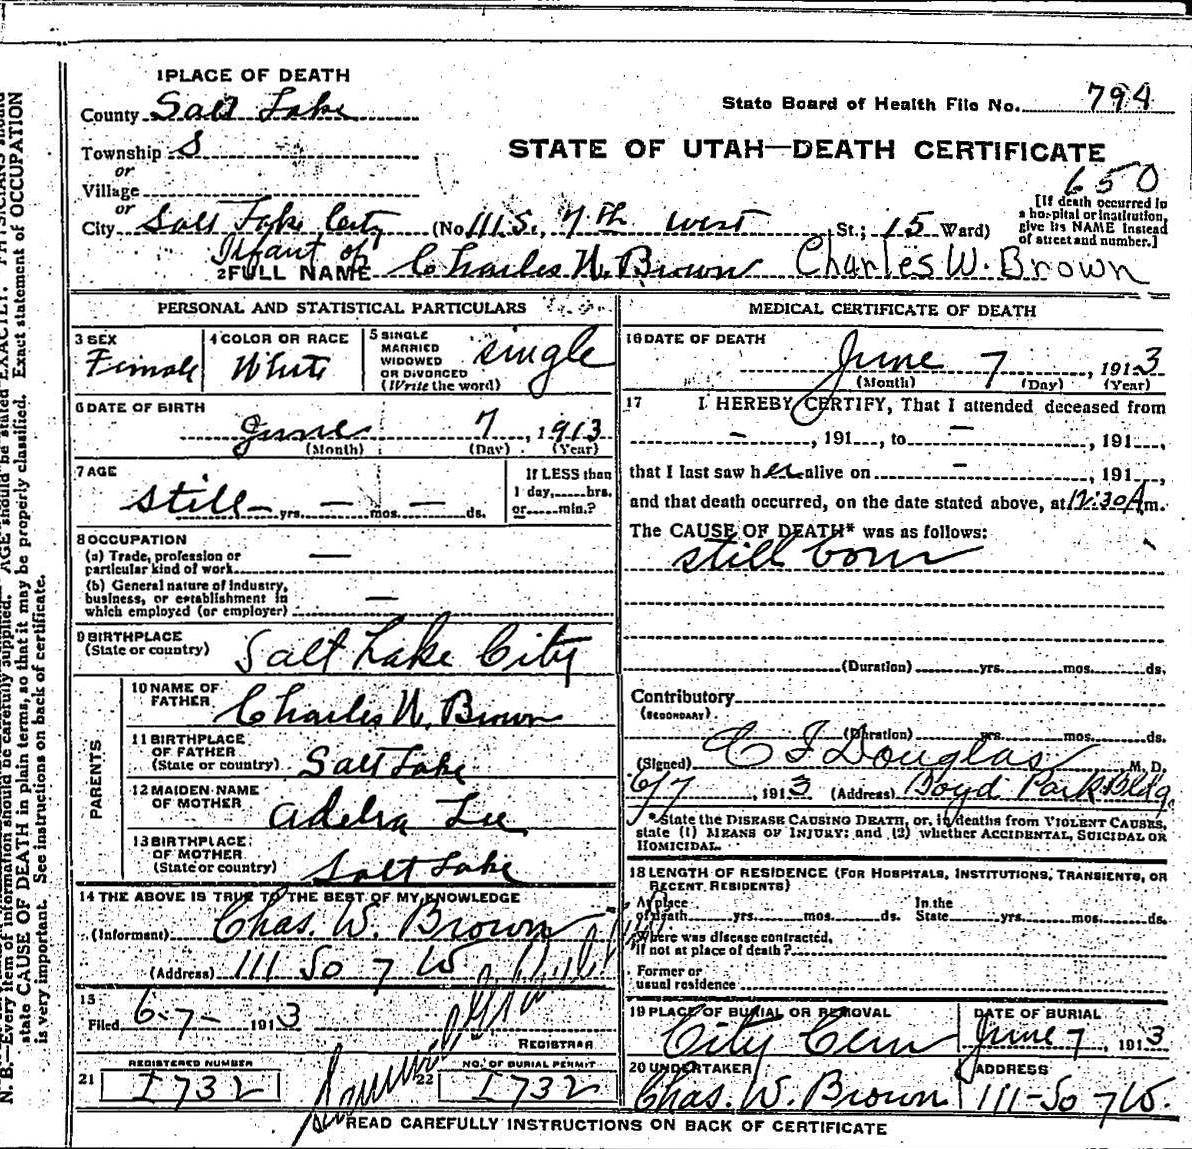 1 PLACE OF DEATH
County Salt Lake
State Board of Health File No. 794
Township S
or
Village
or
STATE OF UTAH—DEATH CERTIFICATE
650
City Salt Lake City (No 111 S. 7th West St.; 15 Ward)
[If death occurred in
a hospital or institution,
give its NAME instead
of street and number.]
Infant of
2 FULL NAME Charles W. Brown Charles W. Brown
PERSONAL AND STATISTICAL PARTICULARS
3 SEX
Female
4 COLOR OR RACE
White
5 SINGLE
MARRIED
WIDOWED
OR DIVORCED
(Write the word)
single
6 DATE OF BIRTH
June 7, 1913
(Month) (Day) (Year)
7 AGE
still — yrs. — mos. — ds.
If LESS than
1 day, hrs.
or min.?
8 OCCUPATION
(a) Trade, profession or
particular kind of work —
(b) General nature of industry,
business, or establishment in
which employed (or employer) —
9 BIRTHPLACE
(State or country) Salt Lake City
PARENTS
10 NAME OF
FATHER Charles W. Brown
11 BIRTHPLACE
OF FATHER
(State or country) Salt Lake
12 MAIDEN NAME
OF MOTHER Lee
13 BIRTHPLACE
OF MOTHER
(State or country) Salt Lake
14 THE ABOVE IS TRUE TO THE BEST OF MY KNOWLEDGE
(Informant) Chas. W. Brown
(Address) 111 So 7 W
15
Filed 6-7- 1913
REGISTRAR
REGISTERED NUMBER
21 1732
NO. OF BURIAL PERMIT
22 1732
MEDICAL CERTIFICATE OF DEATH
16 DATE OF DEATH
June 7, 1913
(Month) (Day) (Year)
17 I HEREBY CERTIFY, That I attended deceased from
—, 191, to —, 191,
that I last saw her alive on —, 191,
and that death occurred, on the date stated above, at 12:30 A m.
The CAUSE OF DEATH* was as follows:
still born
(Duration) yrs. mos. ds.
Contributory
(SECONDARY)
(Duration) yrs. mos. ds.
(Signed) C F Douglas M. D.
6/7, 1913 (Address) Boyd Park Bldg.
*State the DISEASE CAUSING DEATH, or, in deaths from VIOLENT CAUSES,
state (1) MEANS OF INJURY; and (2) whether ACCIDENTAL, SUICIDAL OR
HOMICIDAL.
18 LENGTH OF RESIDENCE (FOR HOSPITALS, INSTITUTIONS, TRANSIENTS, OR
RECENT RESIDENTS)
At place
of death yrs. mos. ds. In the
State yrs. mos. ds.
Where was disease contracted,
if not at place of death?
Former or
usual residence
19 PLACE OF BURIAL OR REMOVAL
City Cem
DATE OF BURIAL
June 7, 1913
20 UNDERTAKER
Chas. W. Brown
ADDRESS
111-So 7 W.
READ CAREFULLY INSTRUCTIONS ON BACK OF CERTIFICATE
N. B.—Every item of information should be carefully supplied. AGE should be stated EXACTLY. PHYSICIANS should
state CAUSE OF DEATH in plain terms, so that it may be properly classified. Exact statement of OCCUPATION
is very important. See instructions on back of certificate.